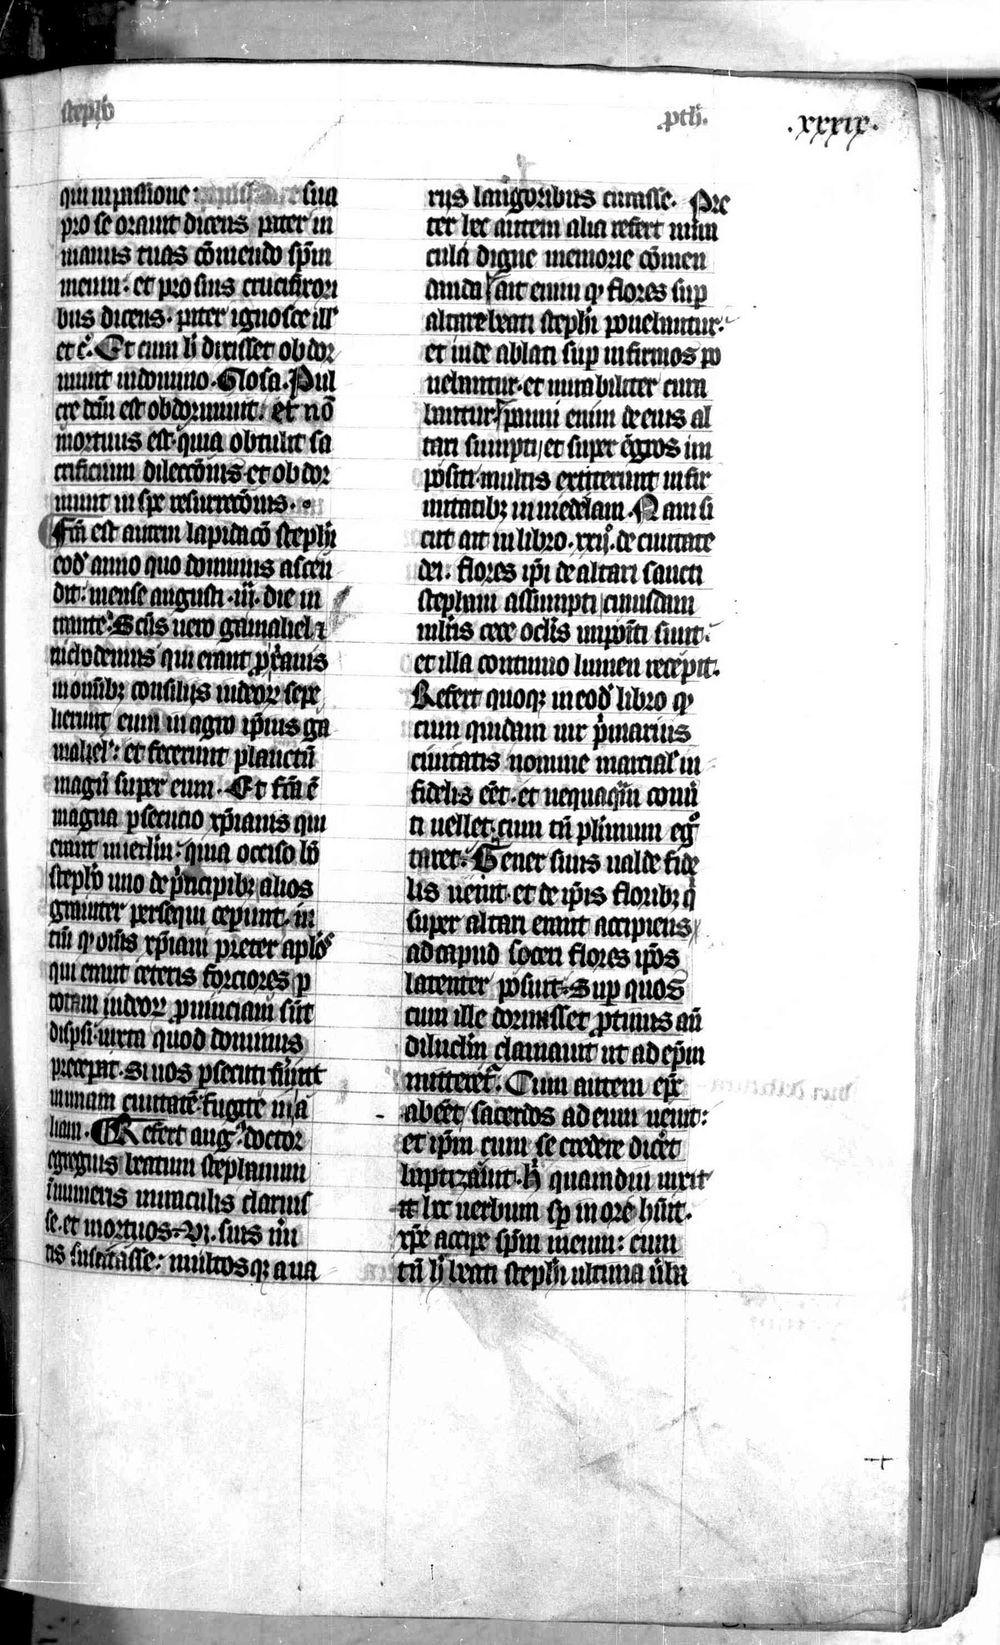 stepho
pth.
.xxxix.
qui in passione: sua
pro se orauit dicens pater in
manus tuas cōmendo sp̄m
meum: et pro suis crucifixori
bus dicens. pater ignosce ill'
et c̄. Et cum h̄ dixisset obdor
miuit in domino. Glosa. Pul
cre dcm̄ est obdormiuit. et nō
mortuus est. quia obtulit sa
crificium dilectōnis. et obdor
miuit in spe resurrectōnis.
Fc̄a est autem lapidacō stephi
eod' anno quo dominus ascen
dit: mense augusti .iij. die in
trante. Scūs uero gamaliel ⁊
nichodemus qui erant pro xp̄ianis
in om̄ibꝫ consilijs iudeoꝝ sepe
lierunt eum in agro ip̄ius ga
maliel': et fecerunt planctū
magnū super eum. Et fc̄a ē
magna ꝑsecucio xp̄ianis qui
erant in ierlm̄: quia occiso bō
stepho uno de p̄ncipibꝫ alios
grauiter persequi ceperunt. in
tm̄ ꝙ om̄s xp̄iani preter aplōs
qui erant ceteris forciores ꝑ
totam iudeoꝝ prouinciam sūt
dispsi. iuxta quod dominus
precepit. Si uos ꝑsecuti fūint
in unam ciuitatē. fugite in a
liam. Refert aug'. doctor
egregius beatum stephanum
innumeris miraculis claruis
se. et mortuos .vi. suis m̄i
tis suscitasse: multosqꝫ a ua
rijs langoribus curasse. Pre
ter hec autem alia refert mira
cula digne memorie cōmen
danda ait enim ꝙ flores suꝑ
altare beati stephi ponebantur.
et inde ablati suꝑ infirmos po
nebantur. et mirabiliter cura
bantur. panni enim de eius al
tari sumpti et super egros im
positi. multis extiterunt infir
mitatibꝫ in medelam. Nam si
cut ait in libro .xxij. de ciuitate
dei: flores ip̄i de altari sancti
stephani assumpti cuiusdam
mulieris cece oclīs impositi sunt.
et illa continuo lumen recepit.
Refert quoqꝫ in eod' libro ꝙ
cum quidam uir p̄marius
ciuitatis nomine marcial' in
fidelis eēt. et nequaq̄m conū
ti uellet. cum tn̄ plīmum eg°
taret. Gener suus ualde fide
lis uenit. et de ip̄is floribꝫ q̄
super altari erant accipiens
ad capud soceri flores ip̄os
latenter posuit. Suꝑ quos
cum ille dormisset ꝓtinus an̄
diluclm̄ clamauit ut ad ep̄m
mitteret'. Cum autem ep̄c
abeēt sacerdos ad eum uenit:
et ip̄m cum se credere diceret
baptizauit. h' quamdiu uixit
hoc uerbum sp̄ in ore hūit.
xp̄e accipe sp̄m meum: cum
tn̄ h' beati stephi ultima ūba